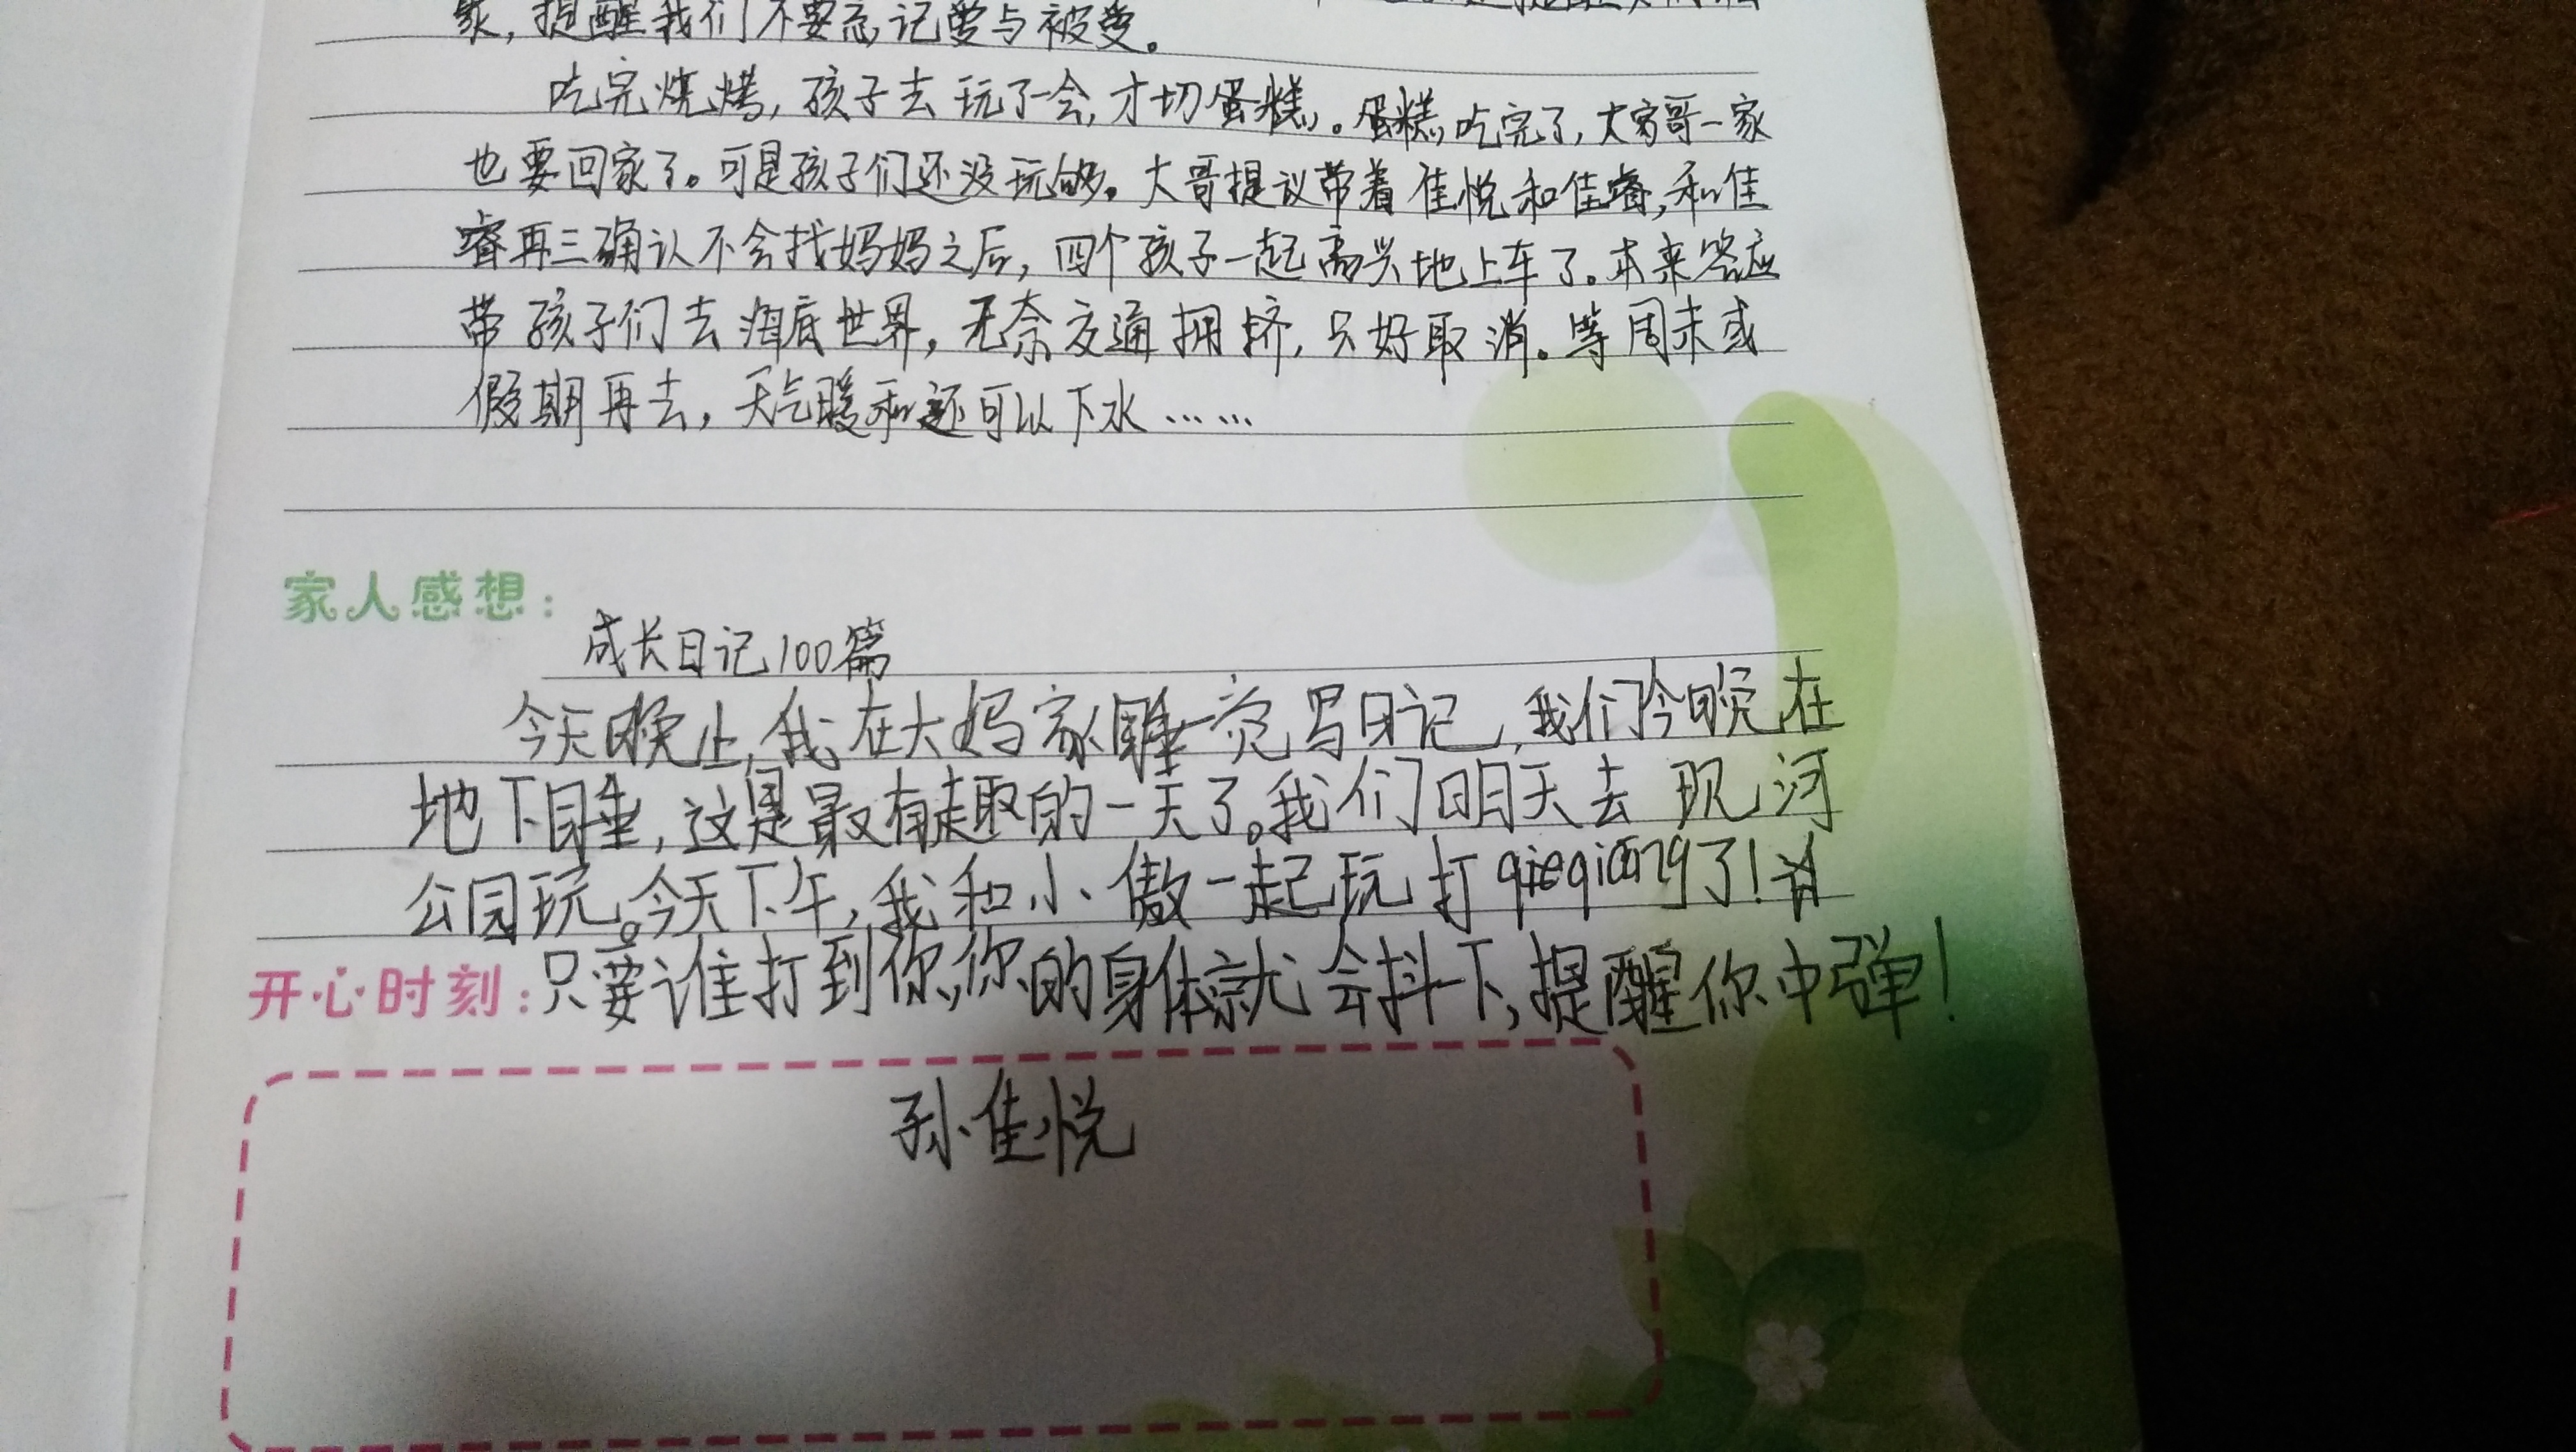 家，提醒我们不要忘记爱与被爱。
吃完烧烤，孩子去玩了一会，才切蛋糕。蛋糕吃完了，大哥一家
也要回家了。可是孩子们还没玩够。大哥提议带着佳悦和佳睿，和佳
睿再三确认不会找妈妈之后，四个孩子一起高兴地上车了。本来答应
带孩子们去海底世界，无奈交通拥挤，只好取消。等周末或
假期再去，天气暖和还可以下水……
家人感想：
成长日记100篇
今天晚上，我在大妈家睡一觉写日记，我们今晚在
地下睡，这是最有趣的一天了。我们明天去现河
公园玩。今天下午，我和小傲一起玩打qieqiang了！
开心时刻：只要谁打到你，你的身体就会抖一下，提醒你中弹！
孙佳悦